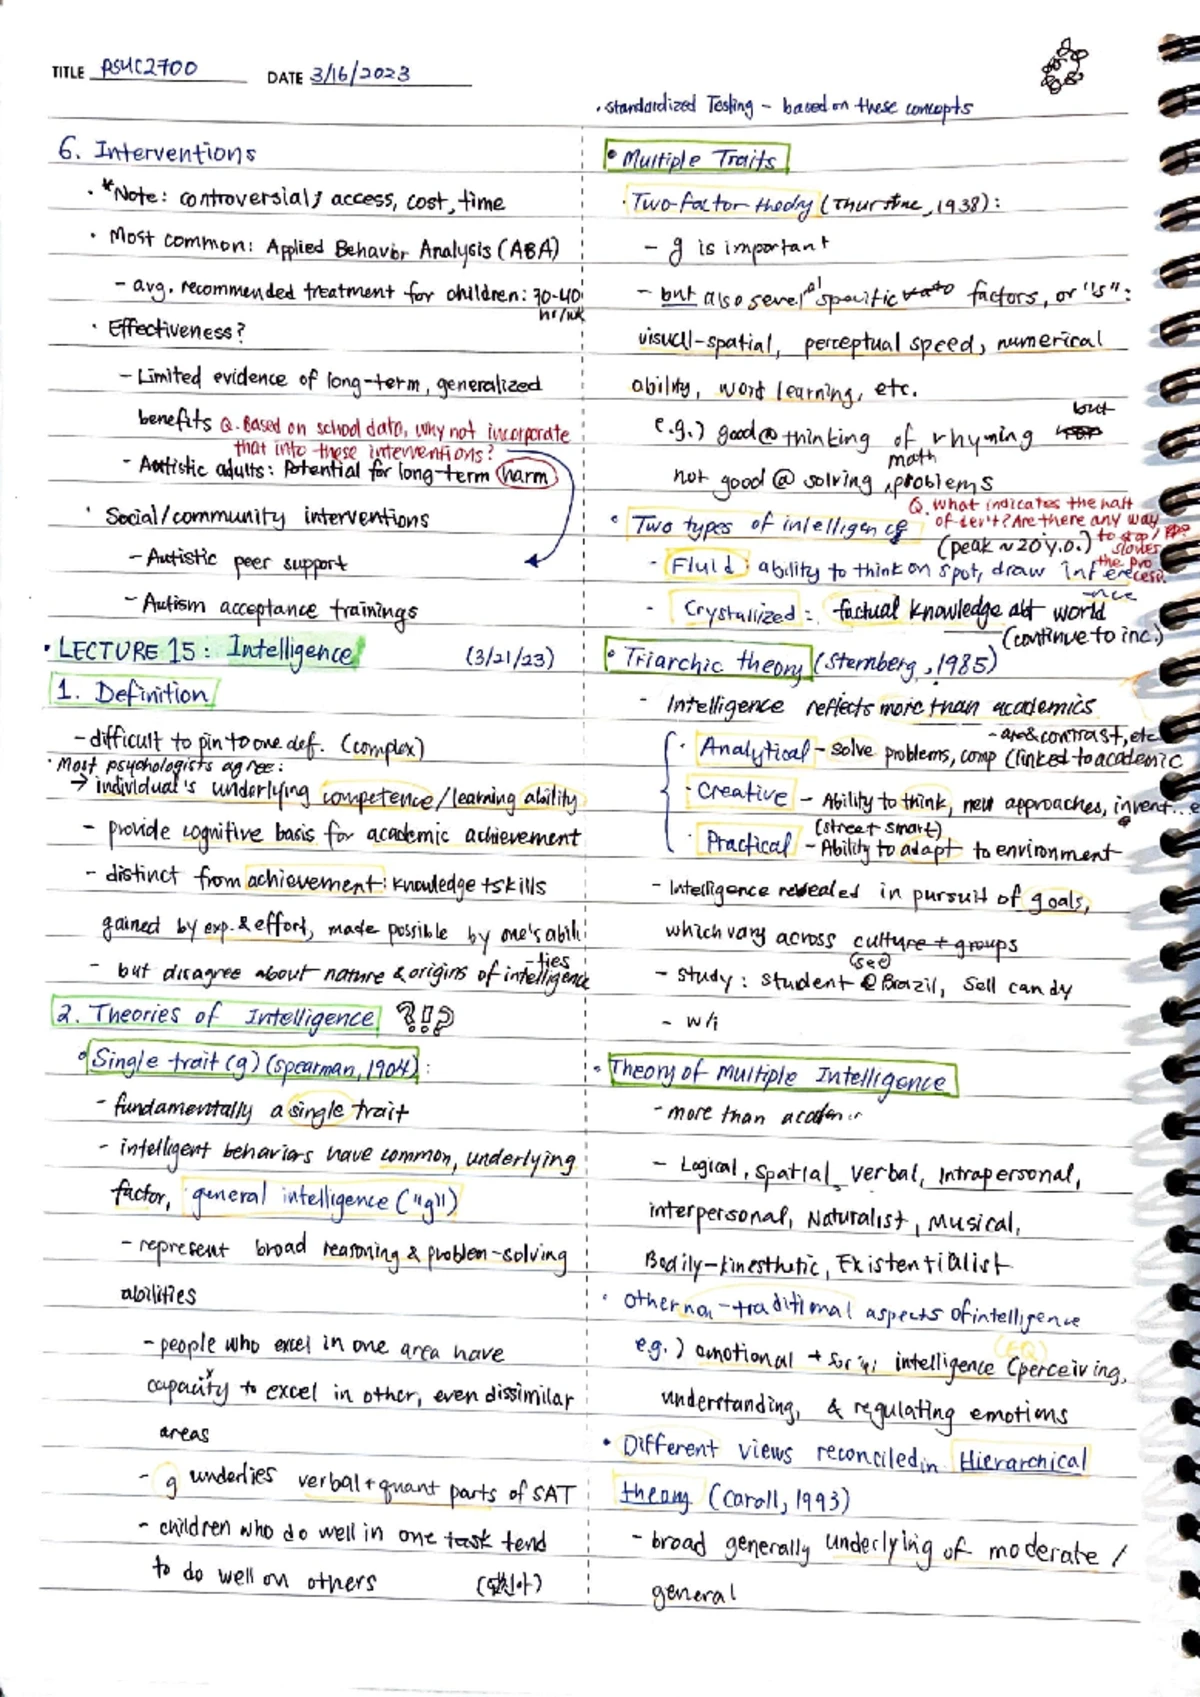 TITLE PSYC2700 DATE 3/16/2023
6. Interventions
• *Note: controversial; access, cost, time
• Most common: Applied Behavior Analysis (ABA)
- avg. recommended treatment for children: 30-40 hr/wk
• Effectiveness?
- Limited evidence of long-term, generalized
benefits Q. Based on school data, why not incorporate
that into these interventions?
- Autistic adults: Potential for long-term harm
• Social/community interventions
- Autistic peer support
- Autism acceptance trainings
• LECTURE 15: Intelligence (3/21/23)
1. Definition
- difficult to pin to one def. (complex)
• Most psychologists agree:
→ individual's underlying competence/learning ability
- provide cognitive basis for academic achievement
- distinct from achievement: knowledge + skills
gained by exp. & effort, made possible by one's abili
-ties
- but disagree about nature & origins of intelligence
2. Theories of Intelligence ?!?
• Single trait (g) (Spearman, 1904):
- fundamentally a single trait
- intelligent behaviors have common, underlying
factor, general intelligence ("g")
- represent broad reasoning & problem-solving
abilities
- people who excel in one area have
capacity to excel in other, even dissimilar
areas
- g underlies verbal + quant parts of SAT
- children who do well in one task tend
to do well on others
• Standardized Testing - based on these concepts
• Multiple Traits
• Two-factor theory (Thurstone, 1938):
- g is important
- but also several specific factors, or "s":
visual-spatial, perceptual speed, numerical
ability, word learning, etc.
e.g.) good @ thinking of rhyming but
not good @ solving math problems
Q. What indicates the half
of dev't? Are there any way
to stop/
slower
the pro
cess?
• Two types of intelligence
(peak ~20 y.o.)
- Fluid: ability to think on spot, draw infere
-nce
- Crystallized: factual knowledge abt world
(continue to inc.)
• Triarchic theory (Sternberg, 1985)
- Intelligence reflects more than academics
- are & contrast, etc
• Analytical - solve problems, comp (linked to academic
• Creative - Ability to think, new approaches, invent...e
(street smart)
• Practical - Ability to adapt to environment
- Intelligence revealed in pursuit of goals,
which vary across culture + groups
(SES)
- Study: student @ Brazil, sell candy
- w/i
• Theory of Multiple Intelligence
- more than academ
- Logical, Spatial, Verbal, Intrapersonal,
interpersonal, Naturalist, Musical,
Bodily-kinesthetic, Existentialist
• Other non-traditional aspects of intelligence
(EQ)
e.g.) emotional + intelligence (perceiving,
understanding, & regulating emotions
• Different views reconciled in Hierarchical
theory (Caroll, 1993)
- broad generally underlying of moderate /
general